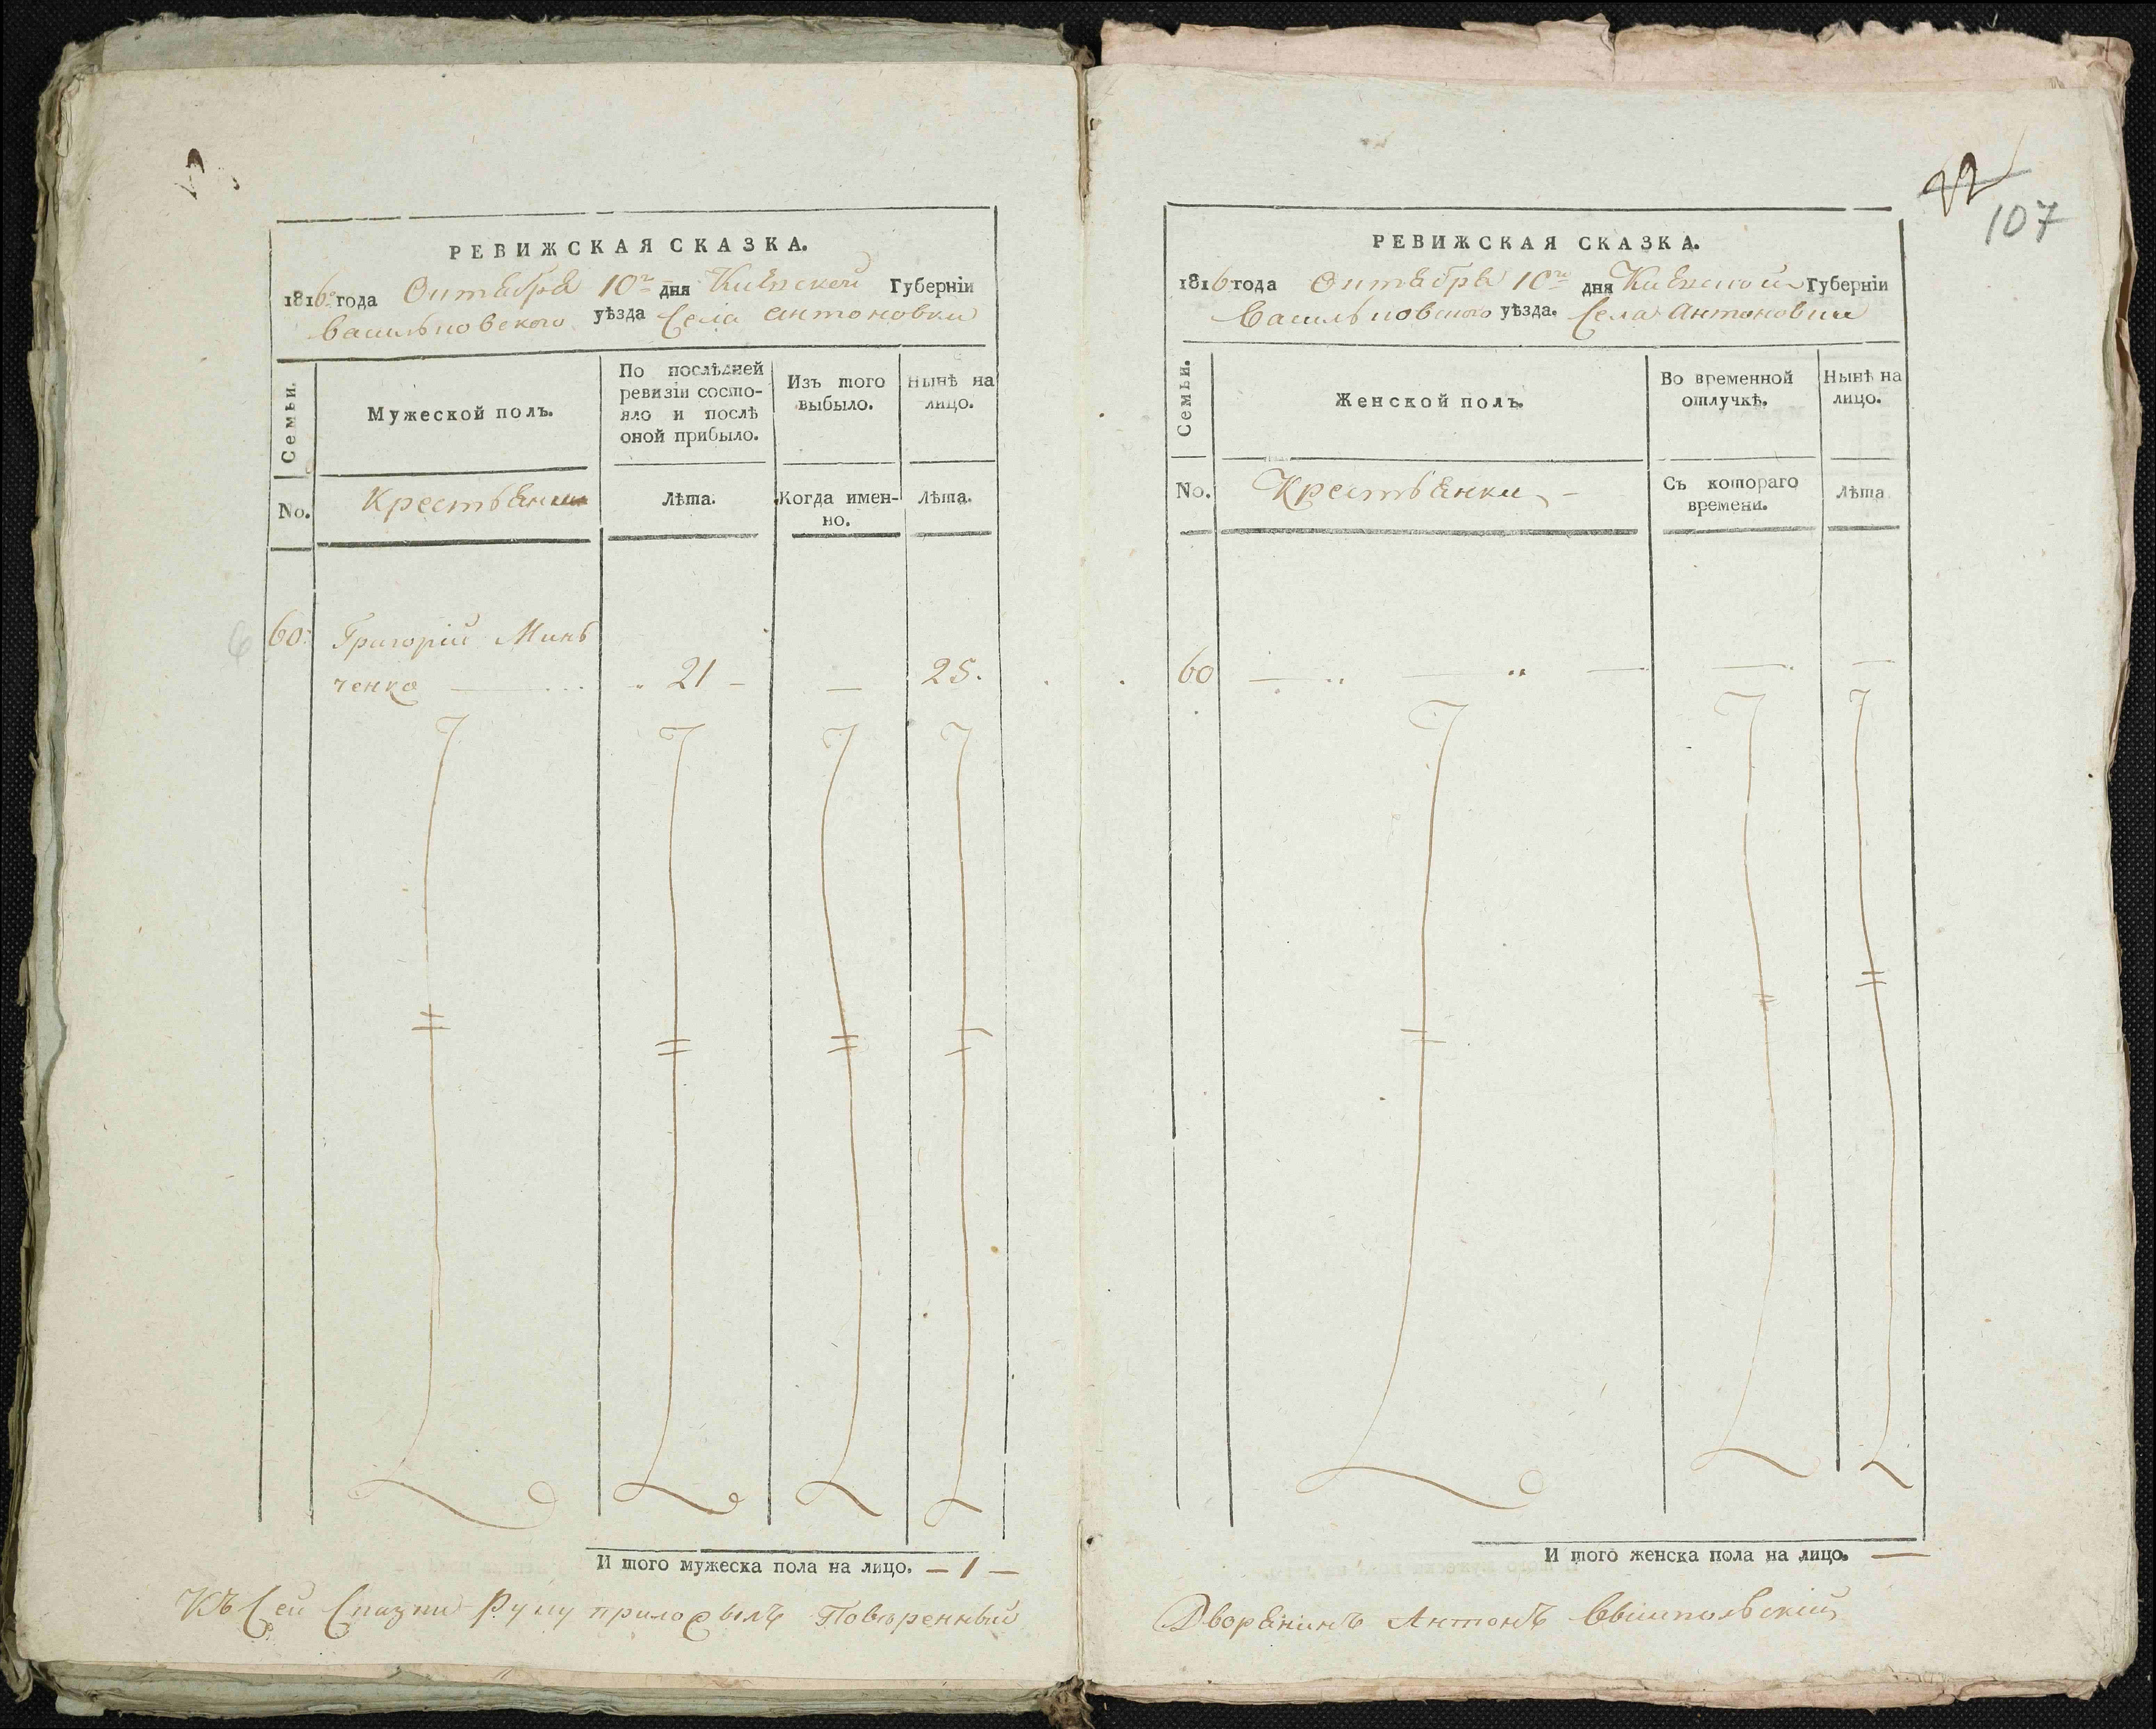 РЕВИЖСКАЯ СКАЗКА.
1816го года Октября 10го дня Кіевской Губерніи
Васильковского уѣзда Села Антоновки
Семьи.
Мужеской полъ.
По послѣдней
ревизіи состо-
яло и послѣ
оной прибыло.
Изъ того
выбыло.
Нынѣ на
лицо.
No.
Крестьяни
Лѣта.
Когда имен-
но.
Лѣта.
60.
Григорій Минь
ченко
21
—
25.
И того мужеска пола на лицо. — 1 —
Къ сей сказки руку приложылъ Поверенный
22
107
РЕВИЖСКАЯ СКАЗКА.
1816 года Октября 10го дня Кіевской Губерніи
Васильковского уѣзда. Села Антоновки
Семьи.
Женской полъ.
Во временной
отлучкѣ.
Нынѣ на
лицо.
No.
Крестьянки
Съ котораго
времени.
Лѣта
60
И того женска пола на лицо. —
Дворянинъ Антонъ